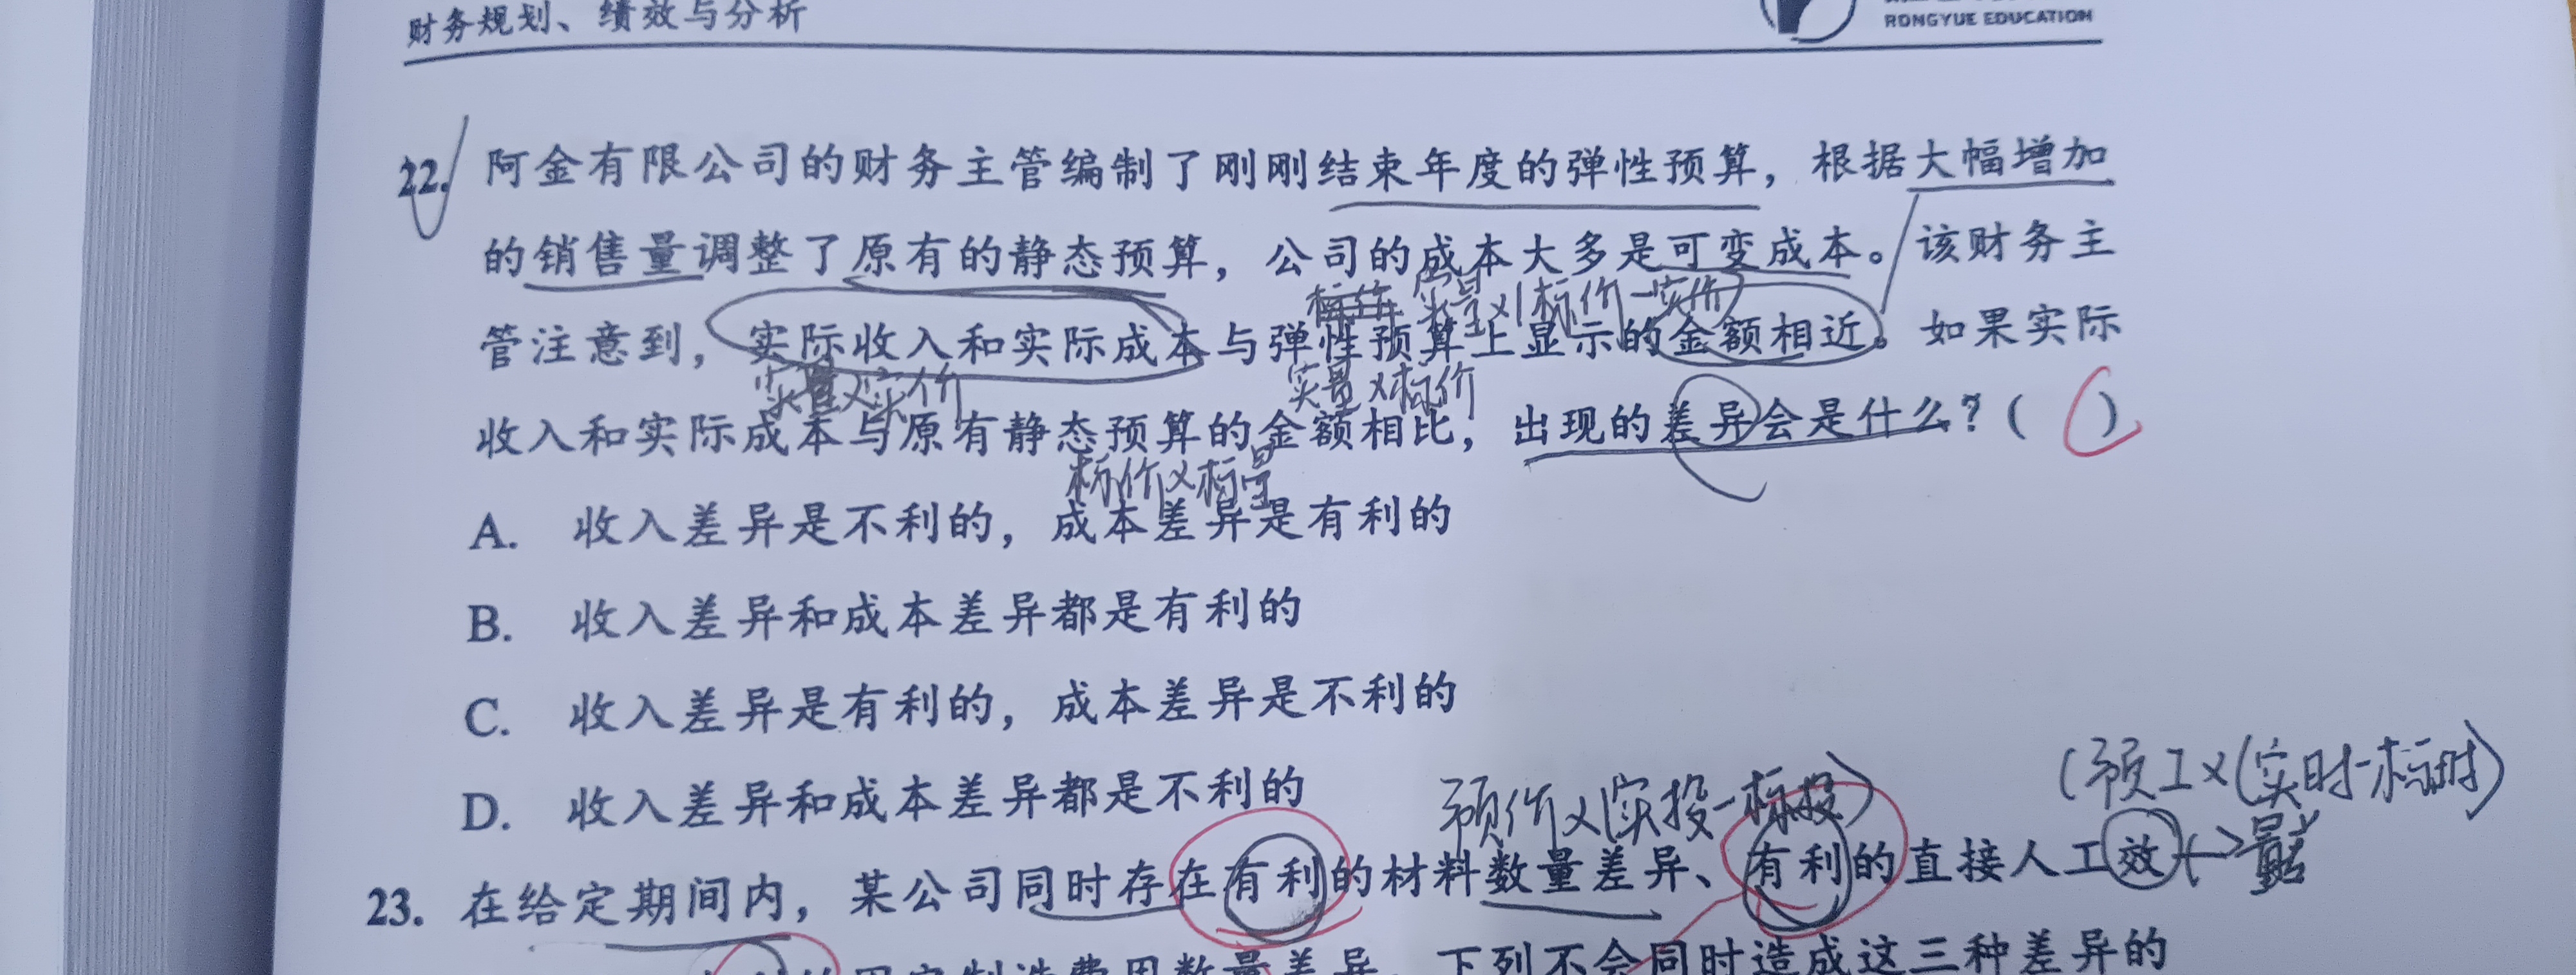 财务规划、绩效与分析
RONGYUE EDUCATION
22. 阿金有限公司的财务主管编制了刚刚结束年度的弹性预算，根据大幅增加
的销售量调整了原有的静态预算，公司的成本大多是可变成本。该财务主
实量×(标价-实价)
管注意到，实际收入和实际成本与弹性预算上显示的金额相近。如果实际
实量×实价 实量×标价
收入和实际成本与原有静态预算的金额相比，出现的差异会是什么？( )
标价×标量
A. 收入差异是不利的，成本差异是有利的
B. 收入差异和成本差异都是有利的
C. 收入差异是有利的，成本差异是不利的
D. 收入差异和成本差异都是不利的
预价×(实投-标投) (预工×(实时-标时)
23. 在给定期间内，某公司同时存在有利的材料数量差异、有利的直接人工效
量
下列不会同时造成这三种差异的